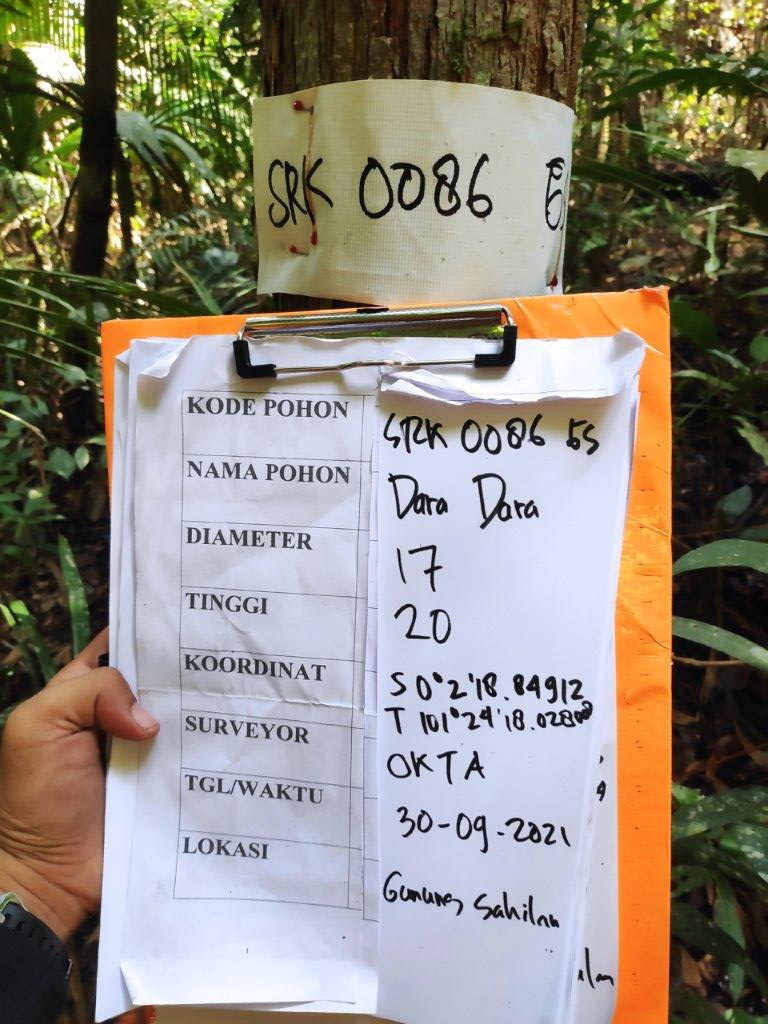 SRK 0086
KODE POHON SRK 0086 ES
NAMA POHON Dara Dara
DIAMETER 17
TINGGI 20
KOORDINAT S 0°2'18.84912
T 101°24'18.02808
SURVEYOR OKTA
TGL/WAKTU 30-09-2021
LOKASI Gunung Sahilan